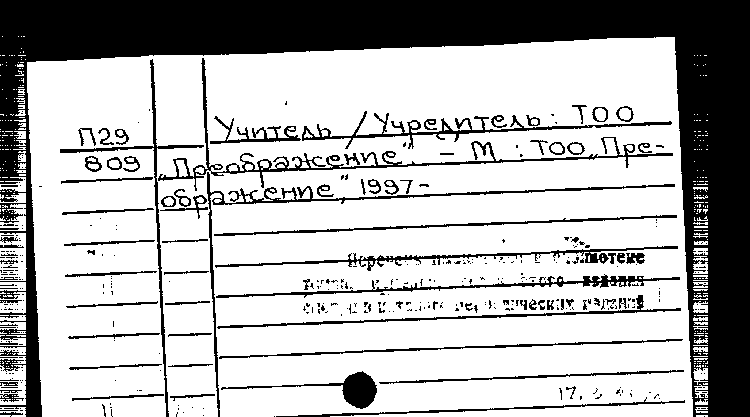 П29
809
Учитель / Учредитель: ТОО
„Преображение". – М : ТОО „Пре-
ображение", 1997-
Перечень в библиотеке
этого издания
в каталоге периодических изданий